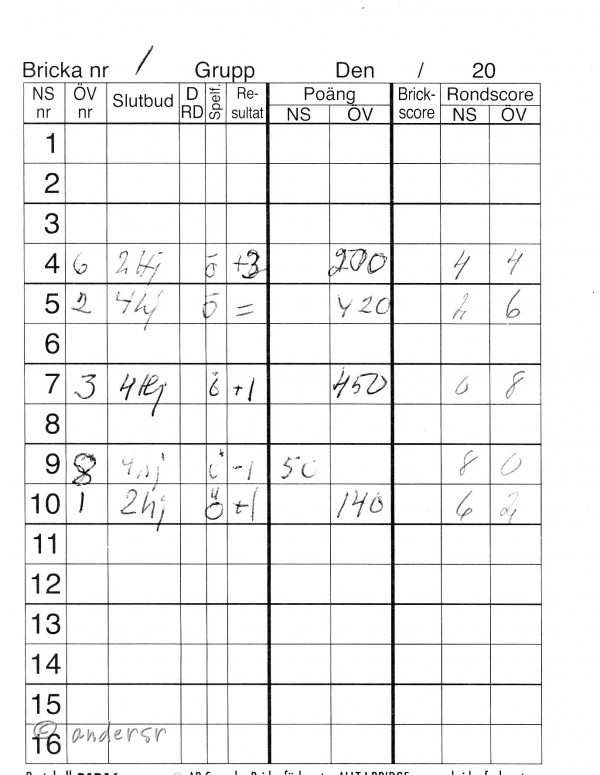 Bricka nr / Grupp Den / 20
NS nr ÖV nr Slutbud D RD Spelf. Re-sultat Poäng NS ÖV Brick-score Rondscore NS ÖV
1
2
3
4 6 2Hj ö +3 200 4 4
5 2 4hj ö = 420 2 6
6
7 3 4Hj ö +1 450 0 8
8
9 8 4hj ö -1 50 8 0
10 1 2hj ö +1 140 6 2
11
12
13
14
15
16
© andersr